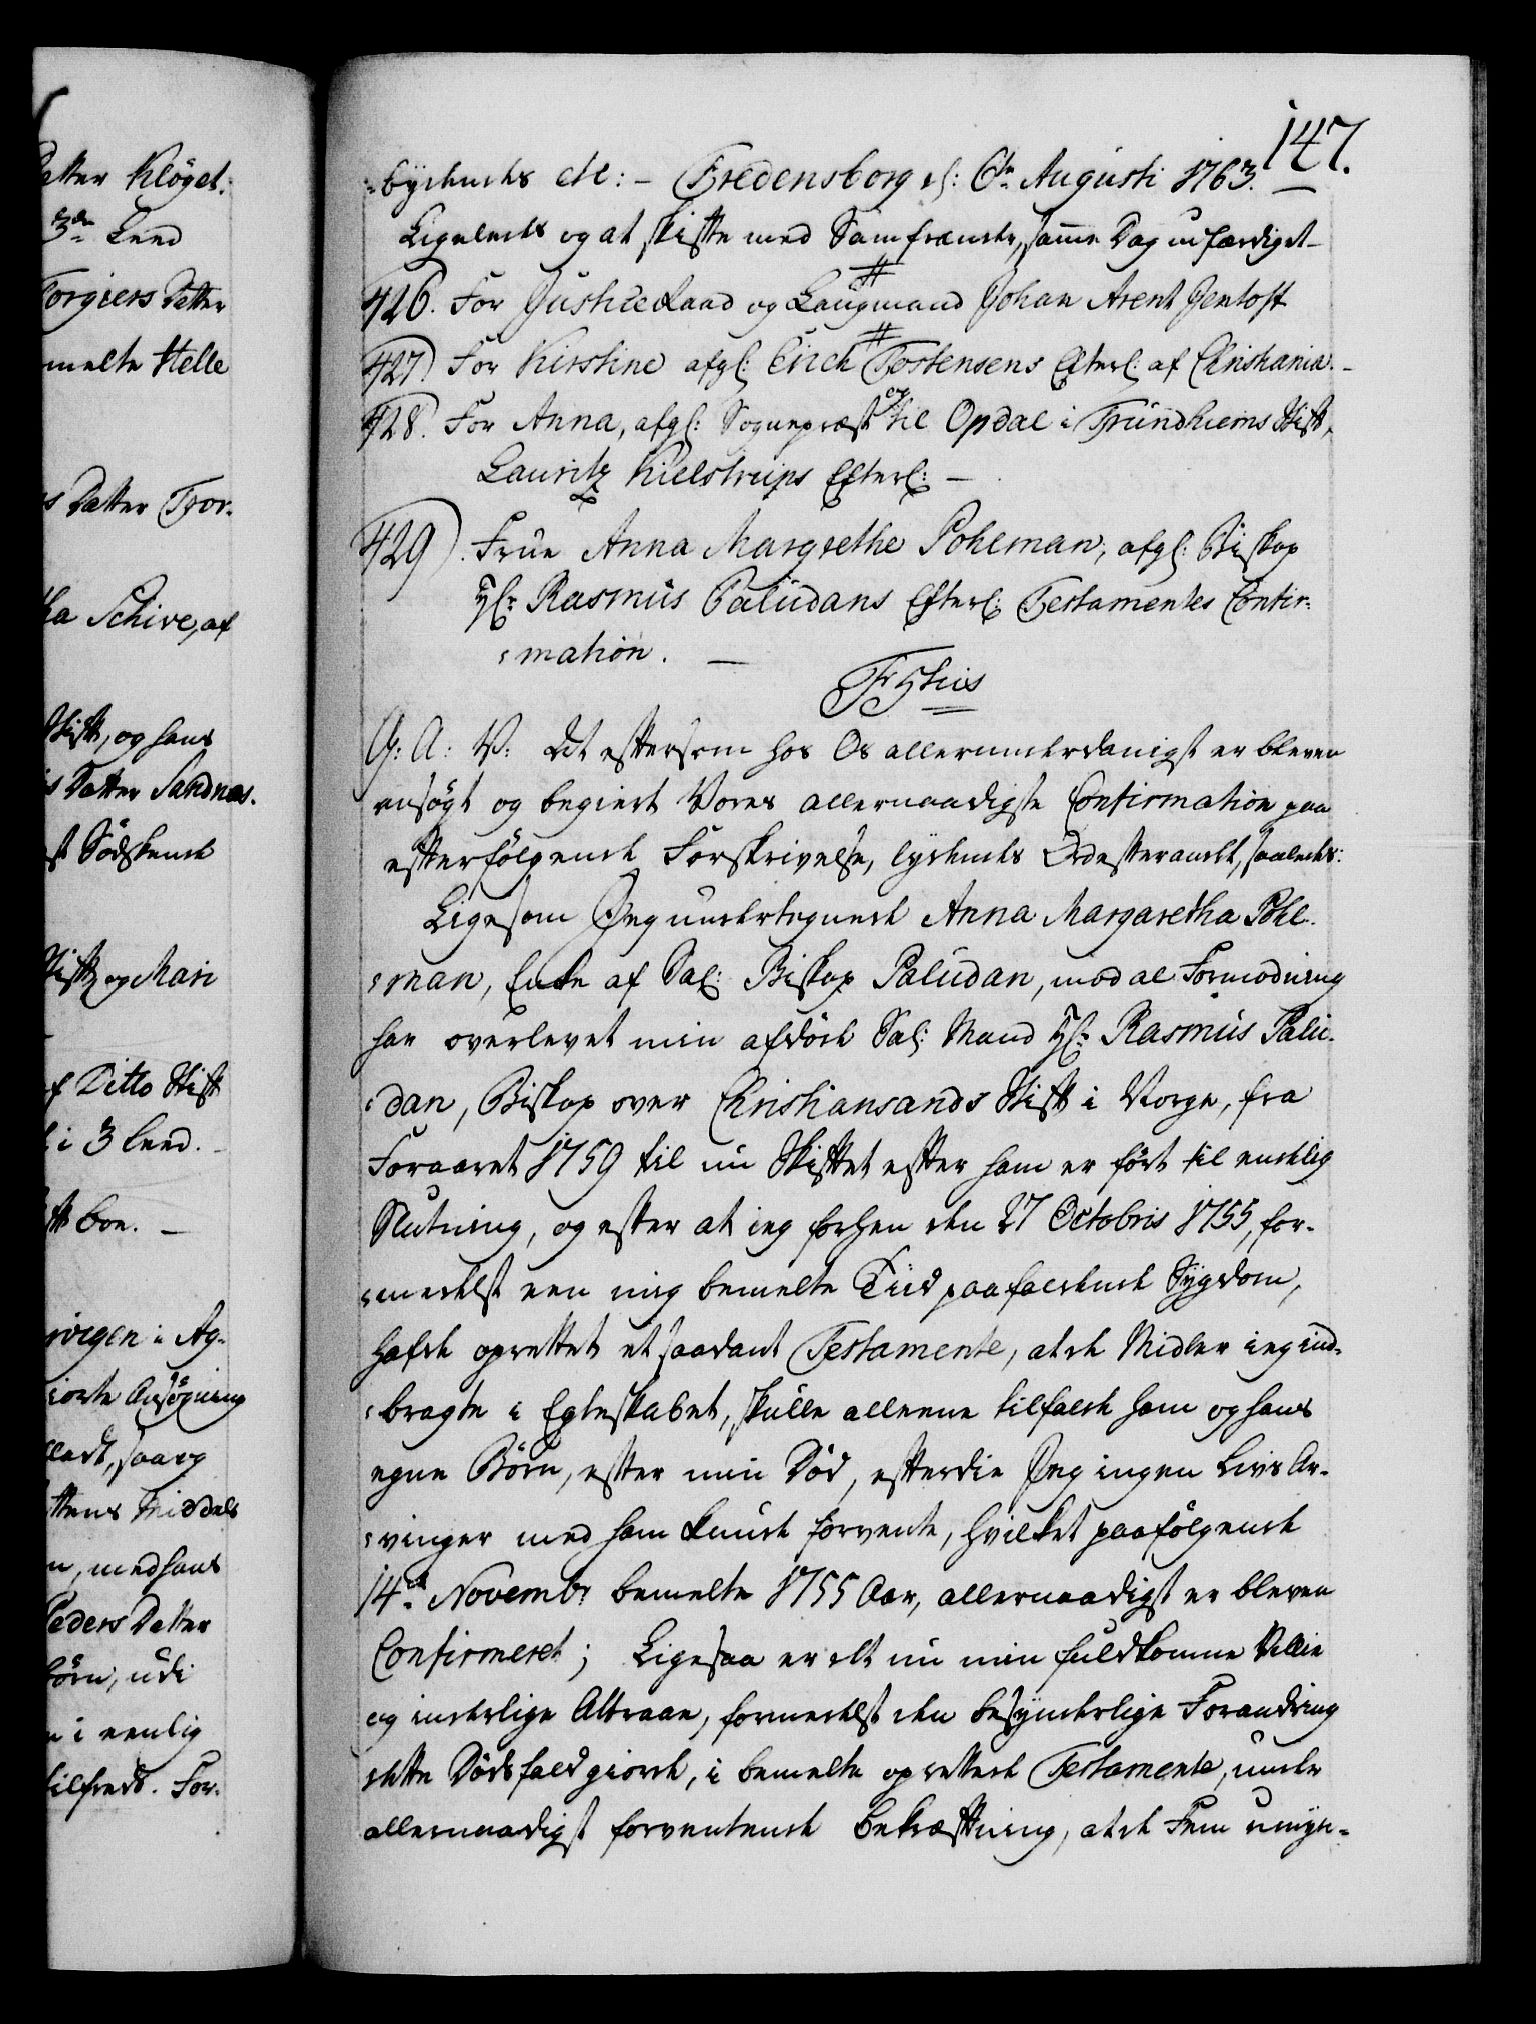 etter Klöget.
3de Leed
Torgiers Datter
melte Helle
s Datter Tror-
ha Schive, af
Stift, og hans
s Datter Sandnæs.
st Södskende
Stift, og Mari
f Ditto Stift
i 3 Leed.
boe.
Ansøgning
Middels
, med hans
Peders Datter
Börn, udi
i venlig
tilfreds. For-
147.
bydendes etc: - Fredensborg d: 6te Augusti 1763.
Ligeledes og at skifte med Samfrender, samme Dag udfærdiget
426. For Justice Raad og Laugmand Johan Arent Gentoft
427. For Kirstine afgl: Erich Tostensens Efterl: af Christiania.
428. For Anna, afgl: Sognepræst til Opdal i Trundhiems Stift,
Lauritz Kielstrups Efterl: -
429). Frue Anna Margrethe Pohlman, afgl: Biskop
Hr: Rasmus Paludans Efterl: Testamentes Confir-
mation. -
F 5tus
G: A: V: At eftersom hos Os allerunderdanigst er bleven
ansögt og begiert Vores allernaadigste Confirmation paa
efterfölgende Forskrivelse, lydendes Ord efter andet, saaledes:
Ligesom Jeg undertegnede Anna Margaretha Pohl-
man, Enke af Sal: Biskop Paludan, mod al Formodning
har overlevet min afdöde Sal: Mand Hr: Rasmus Palu-
dan, Biskop over Christiansands Stift i Norge, fra
Foraaret 1759 til nu Skiftet efter ham er fört til endelig
Slutning, og efter at ieg forhen den 27 Octobris 1755, for-
medelst een mig bemelte Tiid paafaldende Sygdom,
hafde oprettet et saadant Testamente, at de Midler ieg ind-
bragte i Egteskabet, skulle alleene tilfalde ham og hans
egne Börn, efter min Död, efterdi Jeg ingen Livs Ar-
vinger med ham kunde forvente, hvilket paafölgende
14de Novembr bemelte 1755 Aar, allernaadigst er bleven
Confirmeret; Ligesaa er det nu min fuldkomne Villie
og inderlige Attraae, formedelst den besynderlige Forandring
dette Dödsfald giorde, i bemelte oprettede Testamente, under
allernaadigst forventende Bekræftning, at de Fem umyn-